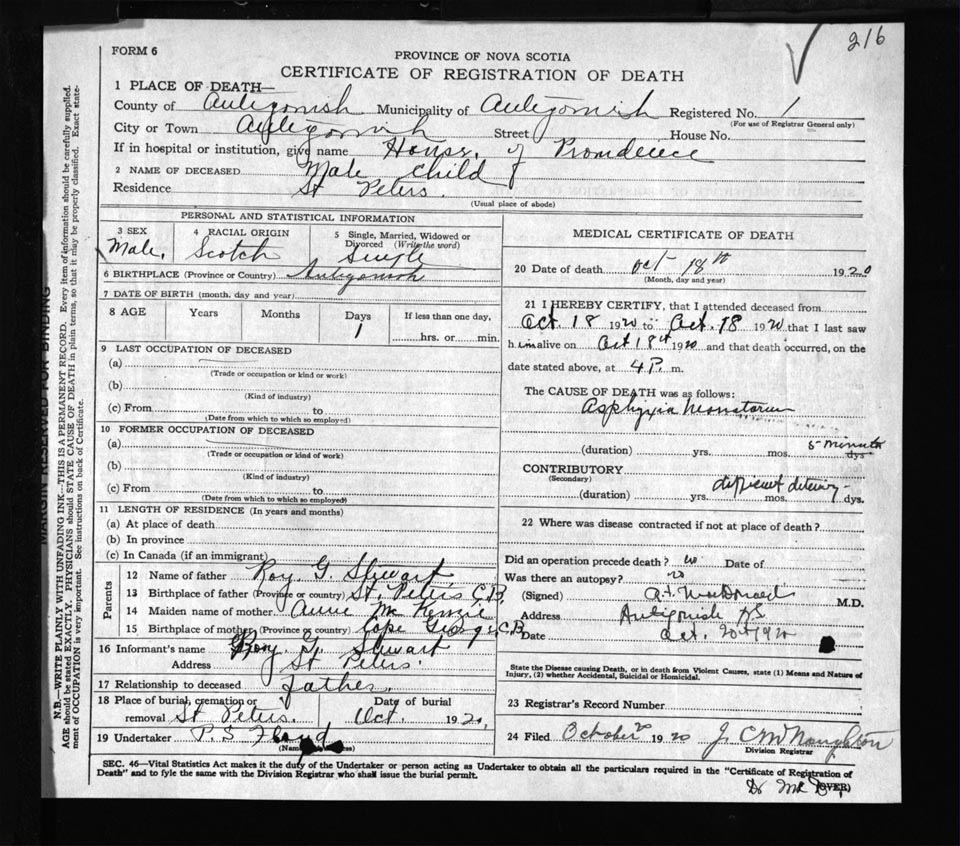 216
FORM 6
PROVINCE OF NOVA SCOTIA
CERTIFICATE OF REGISTRATION OF DEATH
1 PLACE OF DEATH—
County of Antigonish Municipality of Antigonish Registered No. 1
(For use of Registrar General only)
City or Town Antigonish Street House No.
If in hospital or institution, give name House of Providence
2 NAME OF DECEASED Male child
Residence St Peters.
(Usual place of abode)
PERSONAL AND STATISTICAL INFORMATION
3 SEX Male.
4 RACIAL ORIGIN Scotch
5 Single, Married, Widowed or Divorced (Write the word) Single
6 BIRTHPLACE (Province or Country) Antigonish
7 DATE OF BIRTH (month, day and year)
8 AGE Years Months Days 1 If less than one day, hrs. or min.
9 LAST OCCUPATION OF DECEASED
(a)
(Trade or occupation or kind or work)
(b)
(Kind of industry)
(c) From to
(Date from which to which so employed)
10 FORMER OCCUPATION OF DECEASED
(a)
(Trade or occupation or kind of work)
(b)
(Kind of industry)
(c) From to
(Date from which to which so employed)
11 LENGTH OF RESIDENCE (In years and months)
(a) At place of death
(b) In province
(c) In Canada (if an immigrant)
Parents
12 Name of father Roy G. Stewart
13 Birthplace of father (Province or country) St. Peters C.B.
14 Maiden name of mother Annie McKenzie
15 Birthplace of mother (Province or country) Cape George C.B.
16 Informant's name Roy G. Stewart
Address St Peters.
17 Relationship to deceased father.
18 Place of burial, cremation or removal St Peters.
Date of burial Oct. 1920,
19 Undertaker P.S Floyd
MEDICAL CERTIFICATE OF DEATH
20 Date of death Oct 18th 1920
(Month, day and year)
21 I HEREBY CERTIFY, that I attended deceased from
Oct. 18 1920 to Oct. 18 1920 that I last saw
him alive on Oct 18th 1920 and that death occurred, on the
date stated above, at 4 P. m.
The CAUSE OF DEATH was as follows:
Asphyxia Neonatorum
(duration) yrs. mos. 5 minutes dys
CONTRIBUTORY
(Secondary)
(duration) yrs. difficult delivery mos. dys.
22 Where was disease contracted if not at place of death?
Did an operation precede death? no Date of
Was there an autopsy? no
(Signed) McDonald M.D.
Address Antigonish NS
Date Oct. 20th 1920
State the Disease causing Death, or in death from Violent Causes, state (1) Means and Nature of
Injury, (2) whether Accidental, Suicidal or Homicidal.
23 Registrar's Record Number
24 Filed October 20 1920 J. C McNaughton
Division Registrar
SEC. 46—Vital Statistics Act makes it the duty of the Undertaker or person acting as Undertaker to obtain all the particulars required in the "Certificate of Registration of
Death" and to fyle the same with the Division Registrar who shall issue the burial permit.
(OVER)
MARGIN RESERVED FOR BINDING
N.B.—WRITE PLAINLY WITH UNFADING INK—THIS IS A PERMANENT RECORD. Every item of information should be carefully supplied.
AGE should be stated EXACTLY. PHYSICIANS should STATE CAUSE OF DEATH in plain terms, so that it may be properly classified. Exact state-
ment of OCCUPATION is very important. See instructions on back of Certificate.